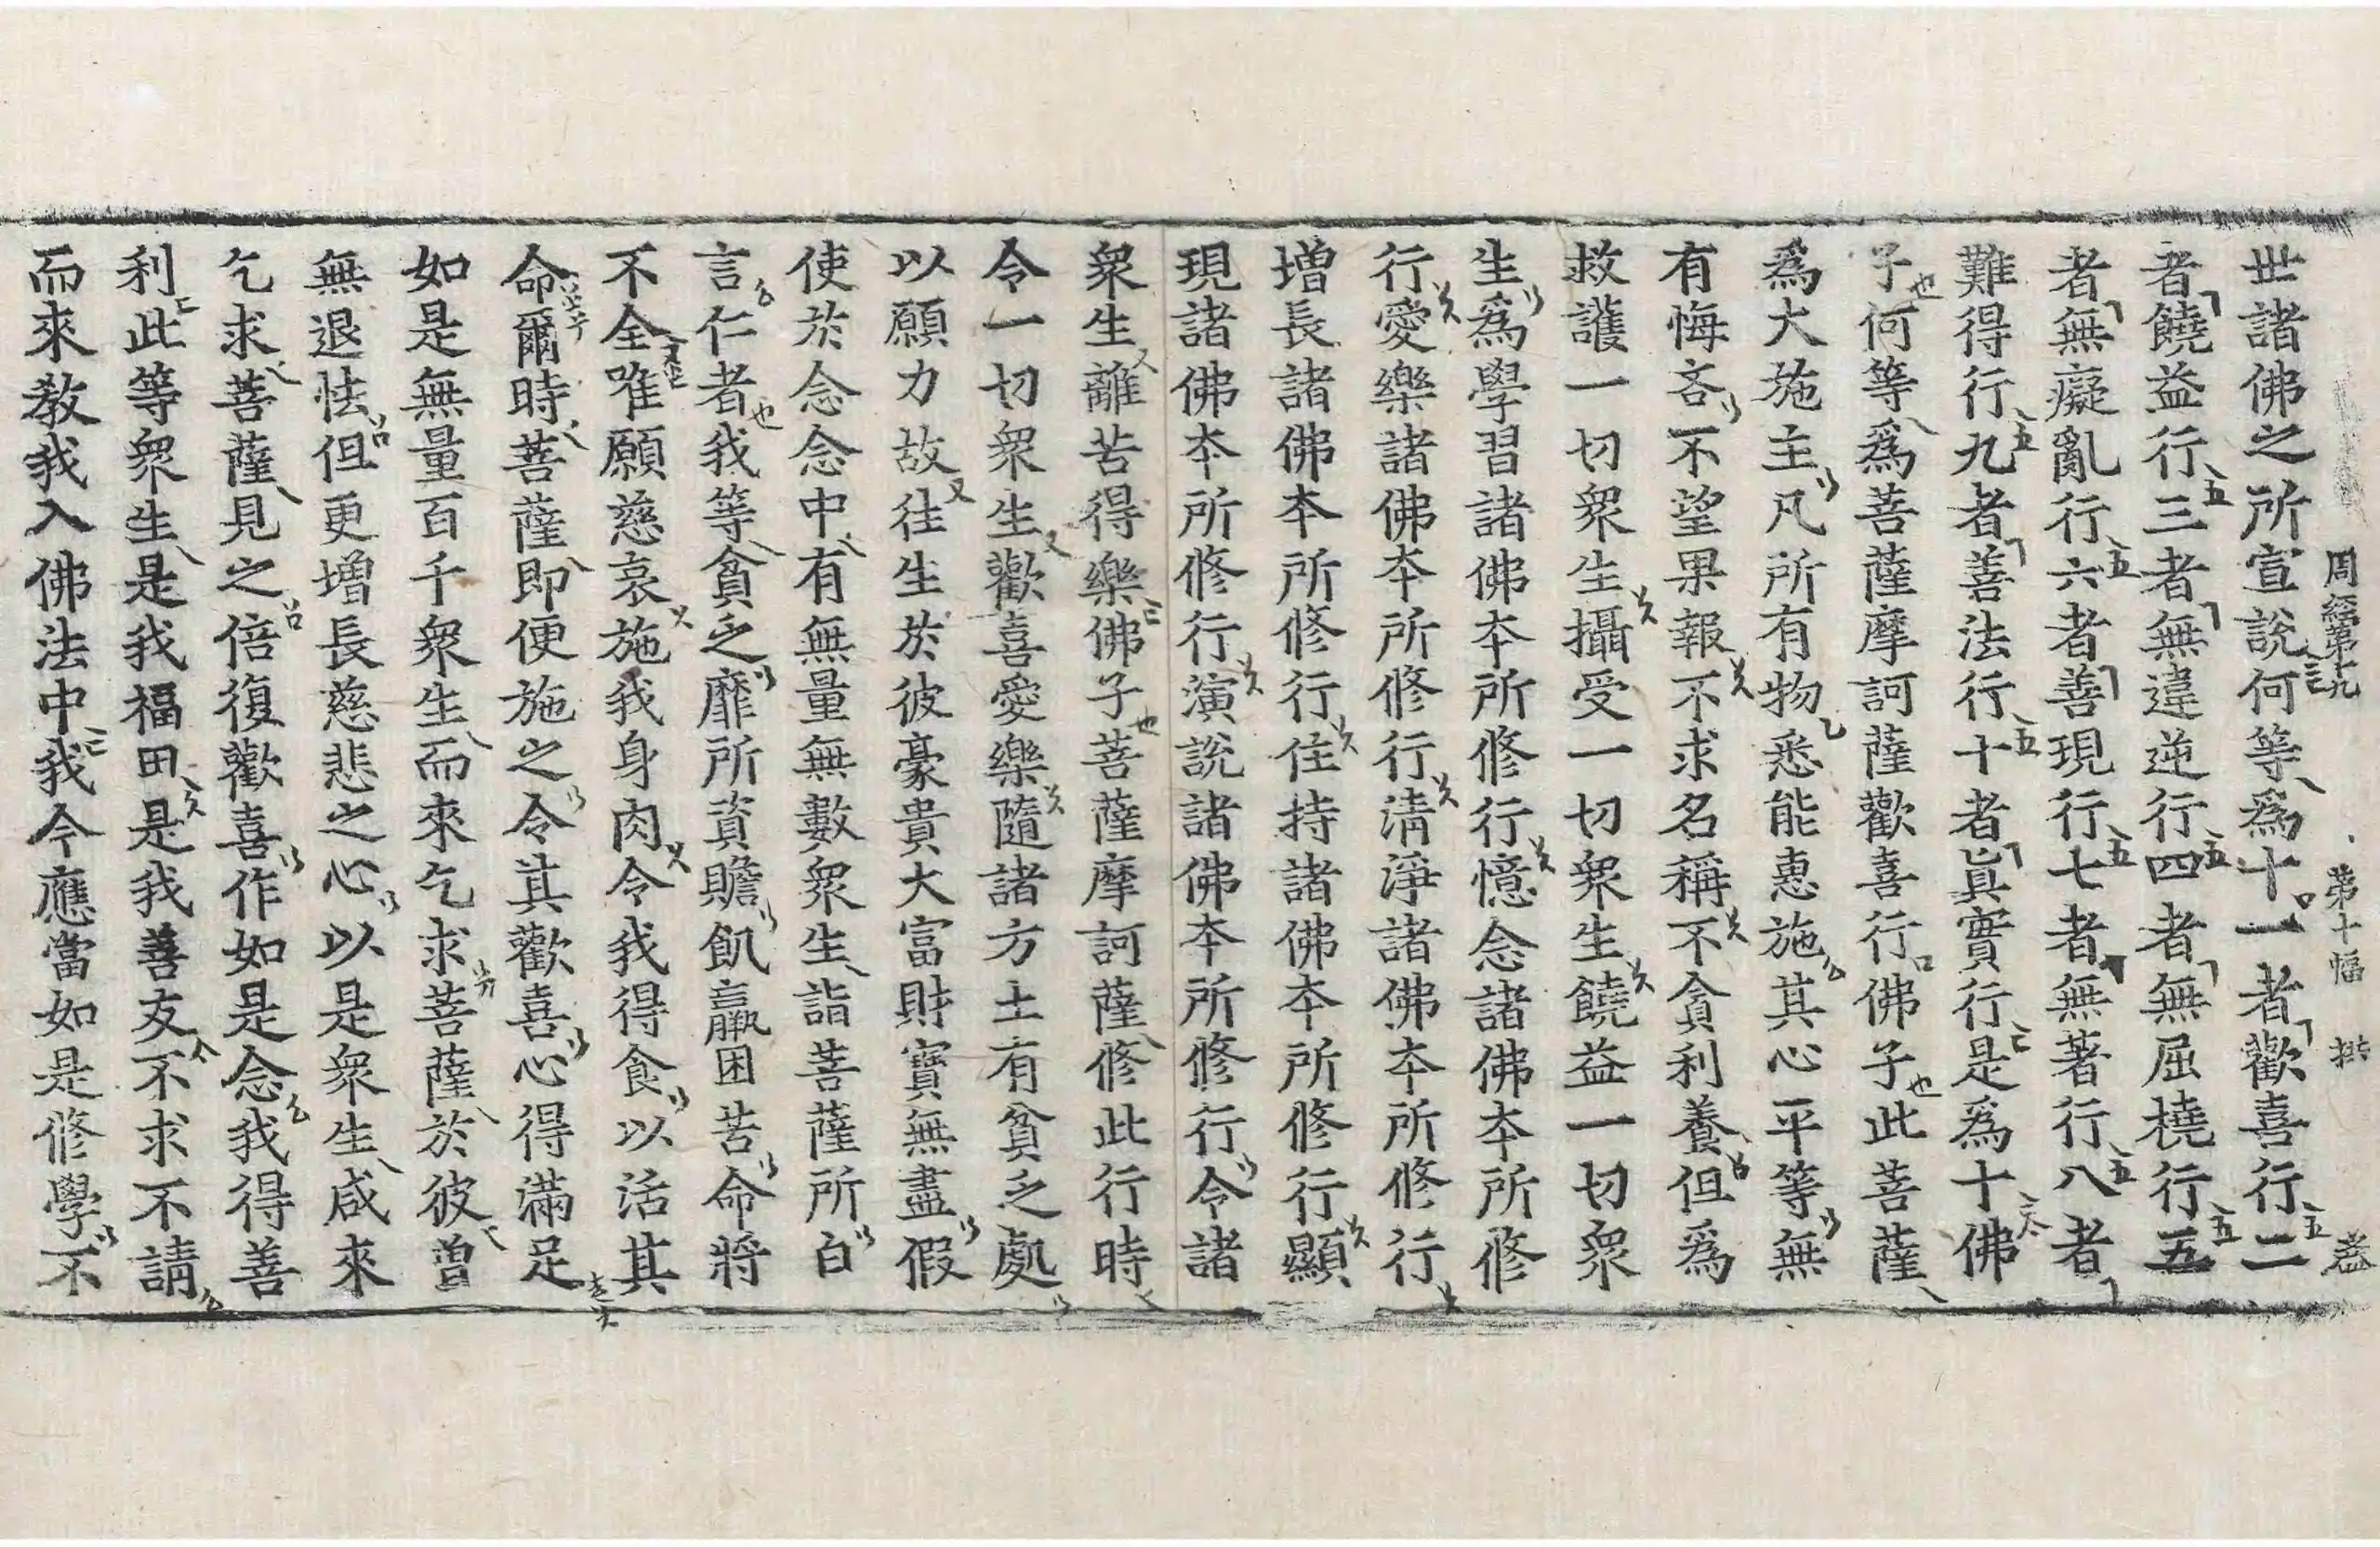 周經第十九 第十幅 拱 盖
世諸佛之所宣說何等為十一者歡喜行二
者饒益行三者無違逆行四者無屈橈行五
者無癡亂行六者善現行七者無著行八者
難得行九者善法行十者眞實行是為十佛
子何等為菩薩摩訶薩歡喜行佛子此菩薩
為大施主凡所有物悉能惠施其心平等無
有悔吝不望果報不求名稱不貪利養但為
救護一切衆生攝受一切衆生饒益一切衆
生為學習諸佛本所修行憶念諸佛本所修
行愛樂諸佛本所修行淸淨諸佛本所修行
增長諸佛本所修行住持諸佛本所修行顯
現諸佛本所修行演說諸佛本所修行令諸
衆生離苦得樂佛子菩薩摩訶薩修此行時
令一切衆生歡喜愛樂隨諸方土有貧乏處
以願力故徃生於彼豪貴大富財寶無盡假
使於念念中有無量無數衆生詣菩薩所白
言仁者我等貧乏靡所資贍飢羸困苦命將
不全唯願慈哀施我身肉令我得食以活其
命爾時菩薩即便施之令其歡喜心得滿足
如是無量百千衆生而來乞求菩薩於彼曾
無退怯但更增長慈悲之心以是衆生咸來
乞求菩薩見之倍復歡喜作如是念我得善
利此等衆生是我福田是我善友不求不請
而來教我入佛法中我今應當如是修學不